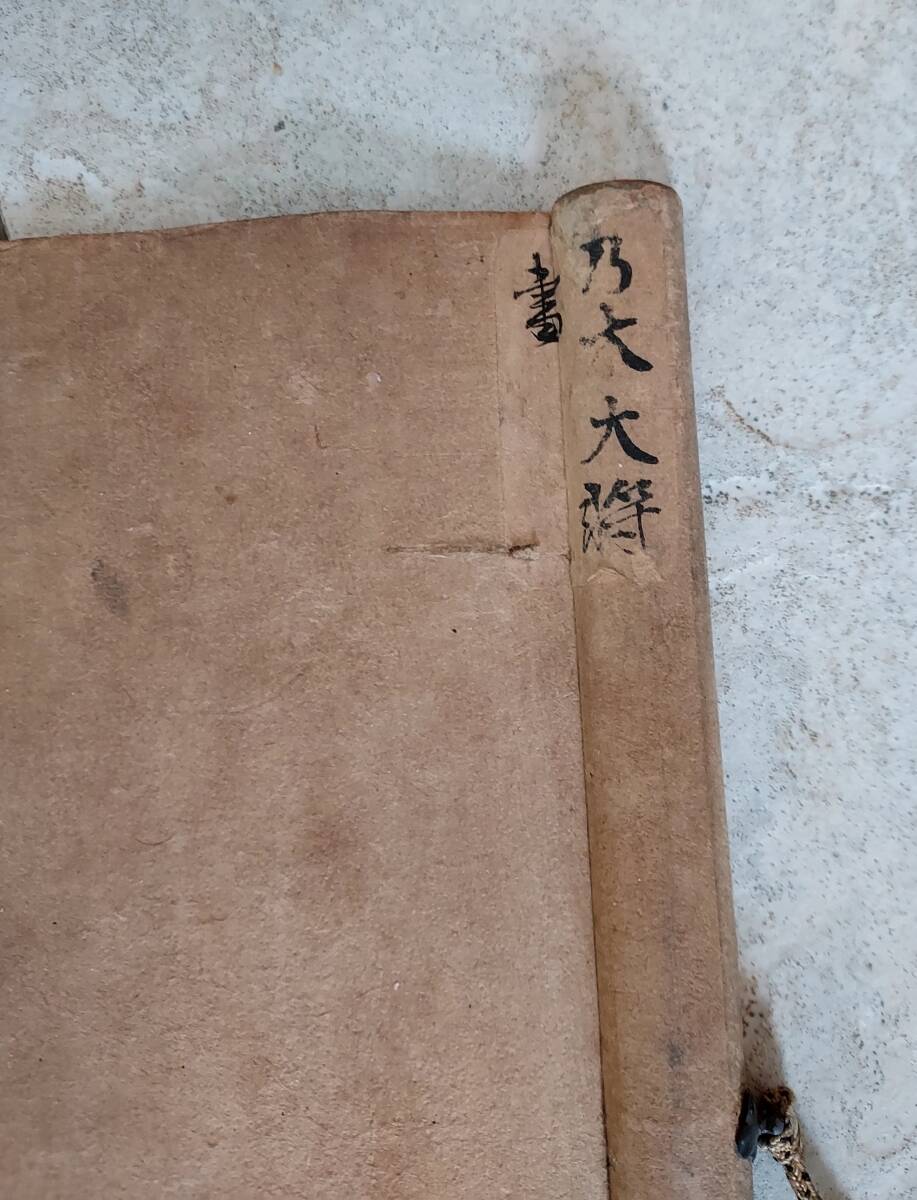 乃木大將
畫